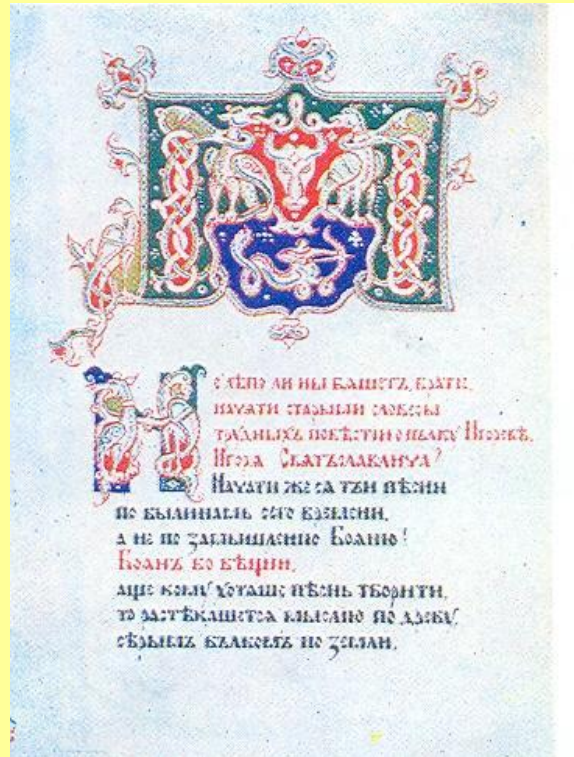 Не лѣпо ли ны бяшетъ, братіе,
начати старыми словесы
трудныхъ повѣстіи о пълку Игоревѣ,
Игоря Святъславлича?
Начати же ся тъи пѣсни
по былинамь сего времени,
а не по замышленію Бояню!
Боянъ бо вѣщии,
аще кому хотяше пѣснь творити,
то растѣкашется мыслію по древу,
сѣрымъ вълкомъ по земли,